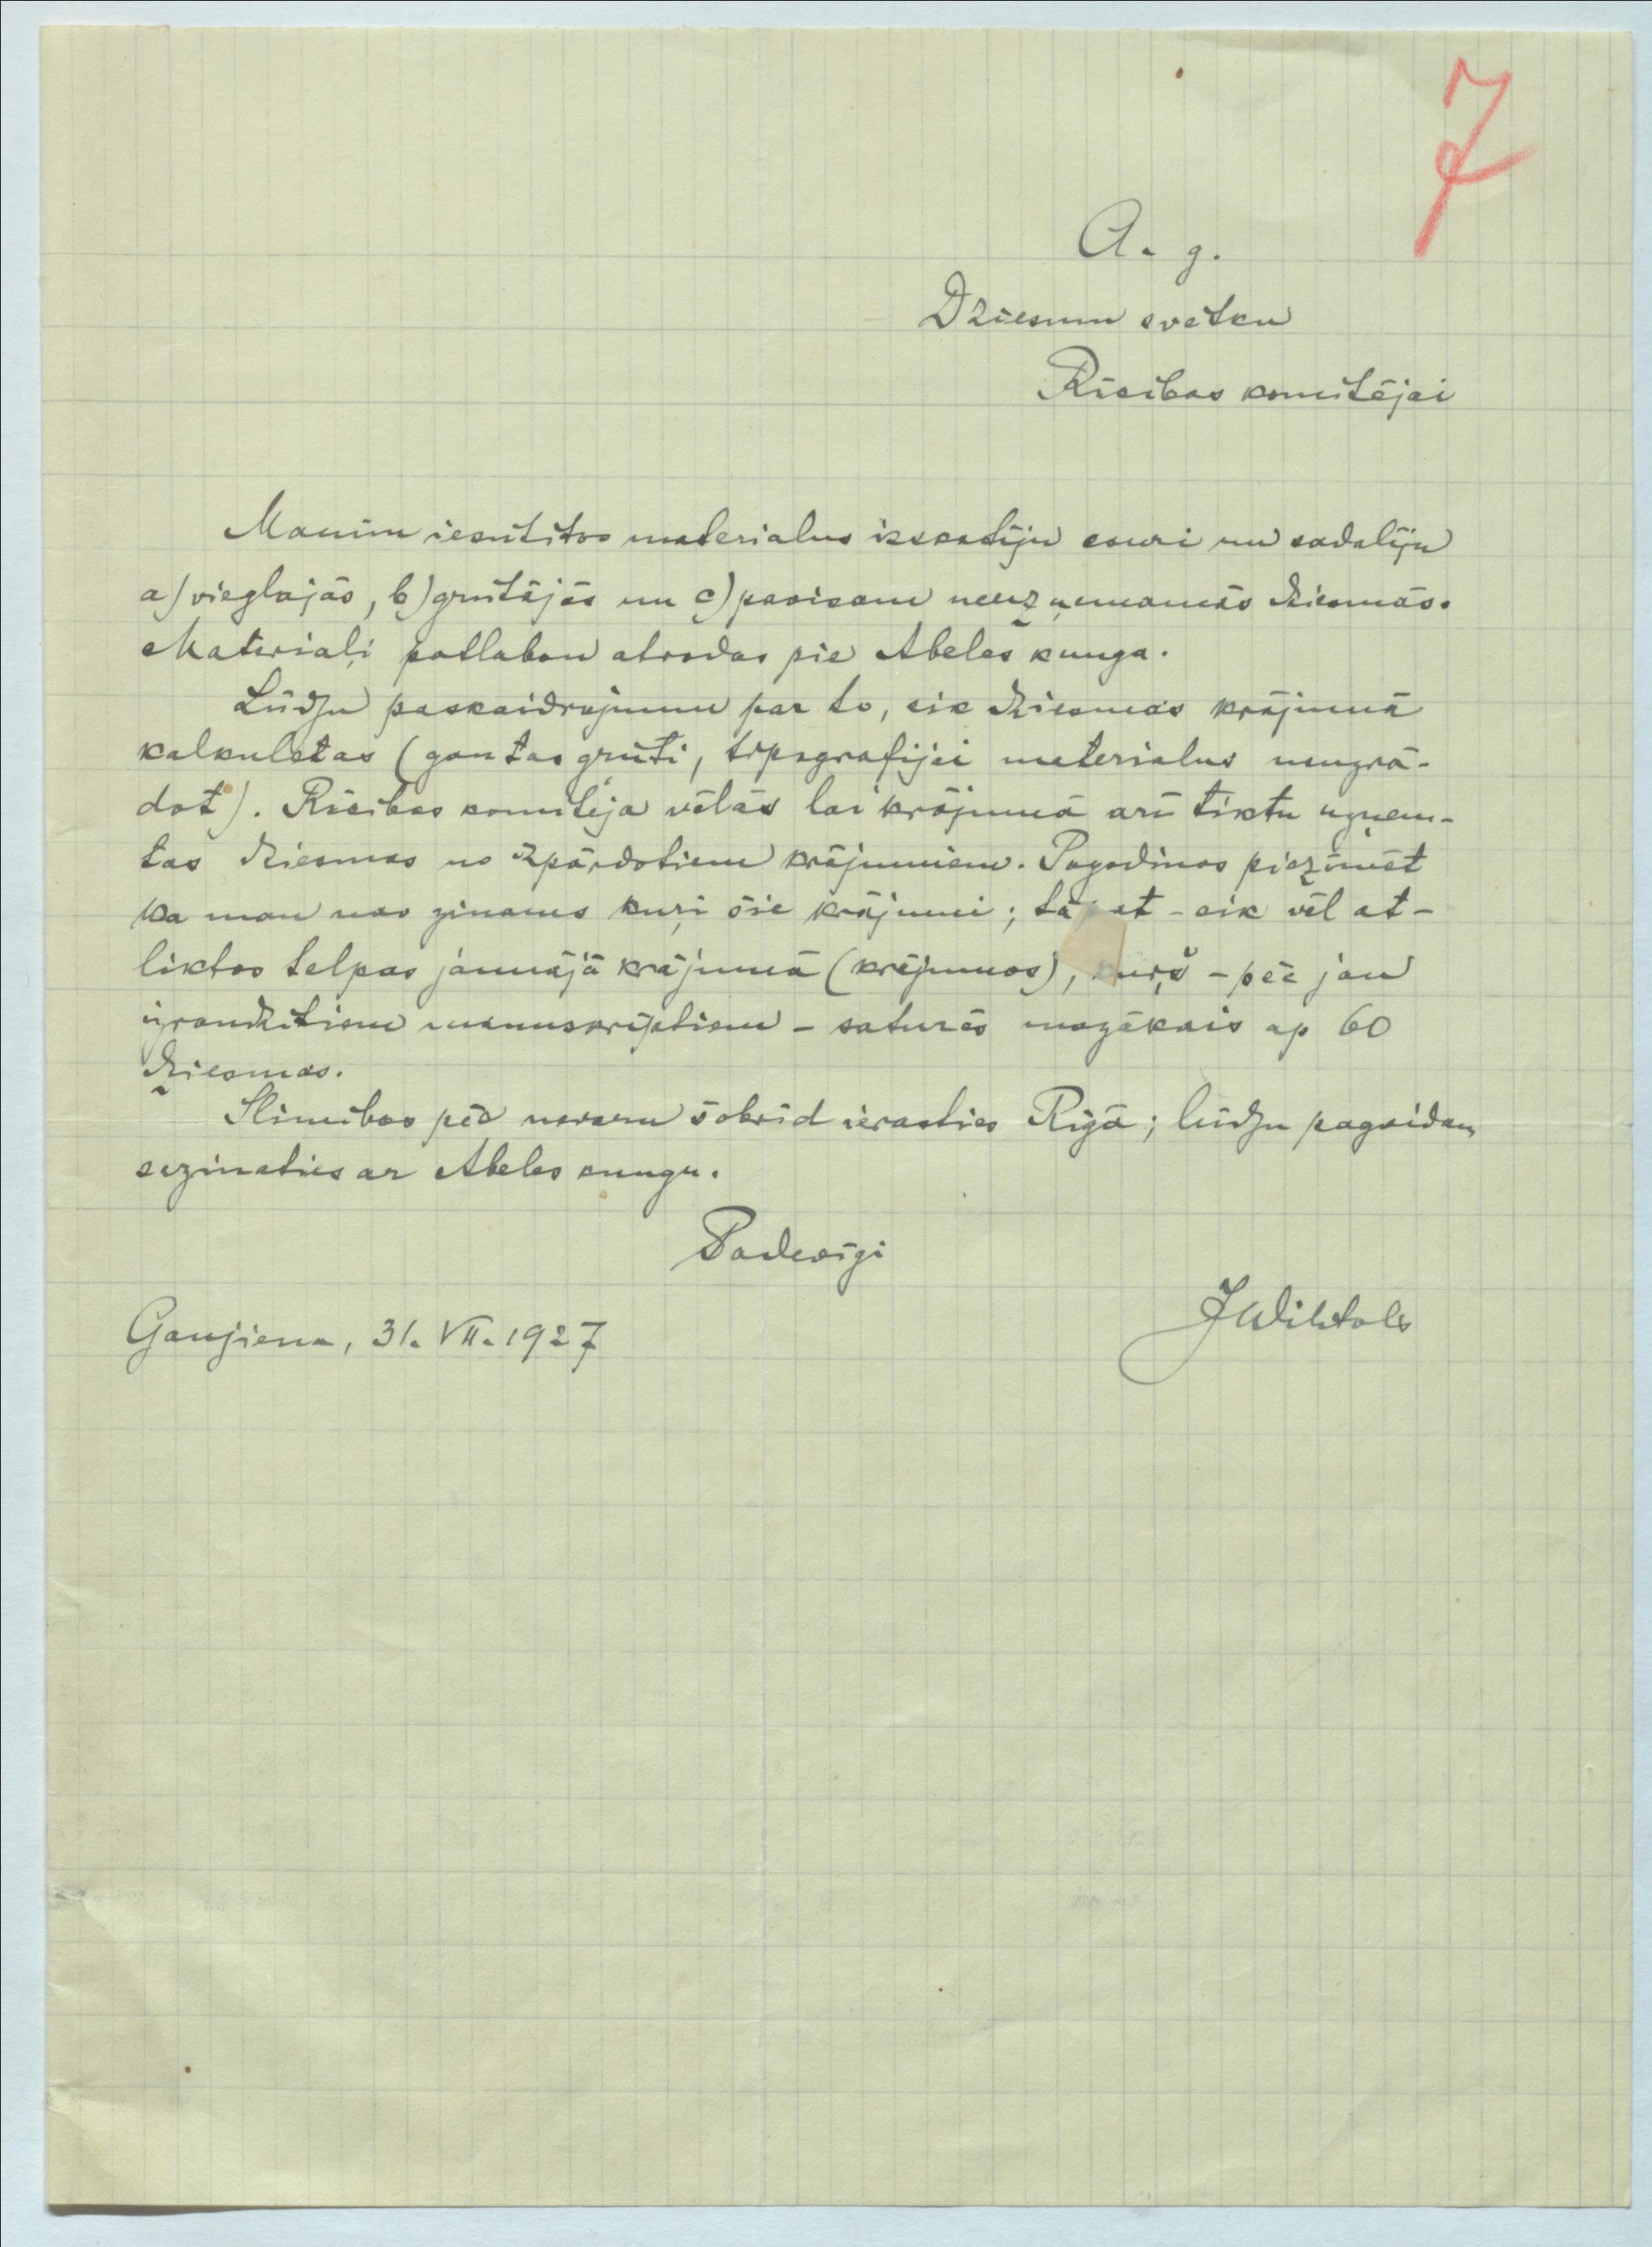 7
A. g.
Dziesmu svētku
Rīcības komitējai
Manim iesūtītos materialus izskatīju cauri un sadalīju
a) vieglajās, b) grūtajās un c) pavisam neuzņemamās dziesmās.
Materiaļi patlaban atrodas pie Abeles kunga.
Lūdzu paskaidrojumu par to, cik dziesmas krājumā
kalkulētas (gan tas grūti, tipografijai materialus neuzrā-
dot). Rīcības komitēja vēlās lai krājumā arī tiktu uzņem-
tas dziesmas no izpārdotiem krājumiem. Pagodinos piezīmēt
ka man nav zinams kuŗi šie krājumi; tāpat - cik vēl at-
liktos telpas jaunājā krājumā (krājumos), kuŗš - pēc jau
izraudzītiem manuskriptiem - saturēs mazākais ap 60
dziesmas.
Slimības pēc nevaru šobrīd ierasties Rīgā; lūdzu pagaidam
sazinaties ar Abeles kungu.
Padevīgi
JWihtols
Gaujiena, 31. VII. 1927